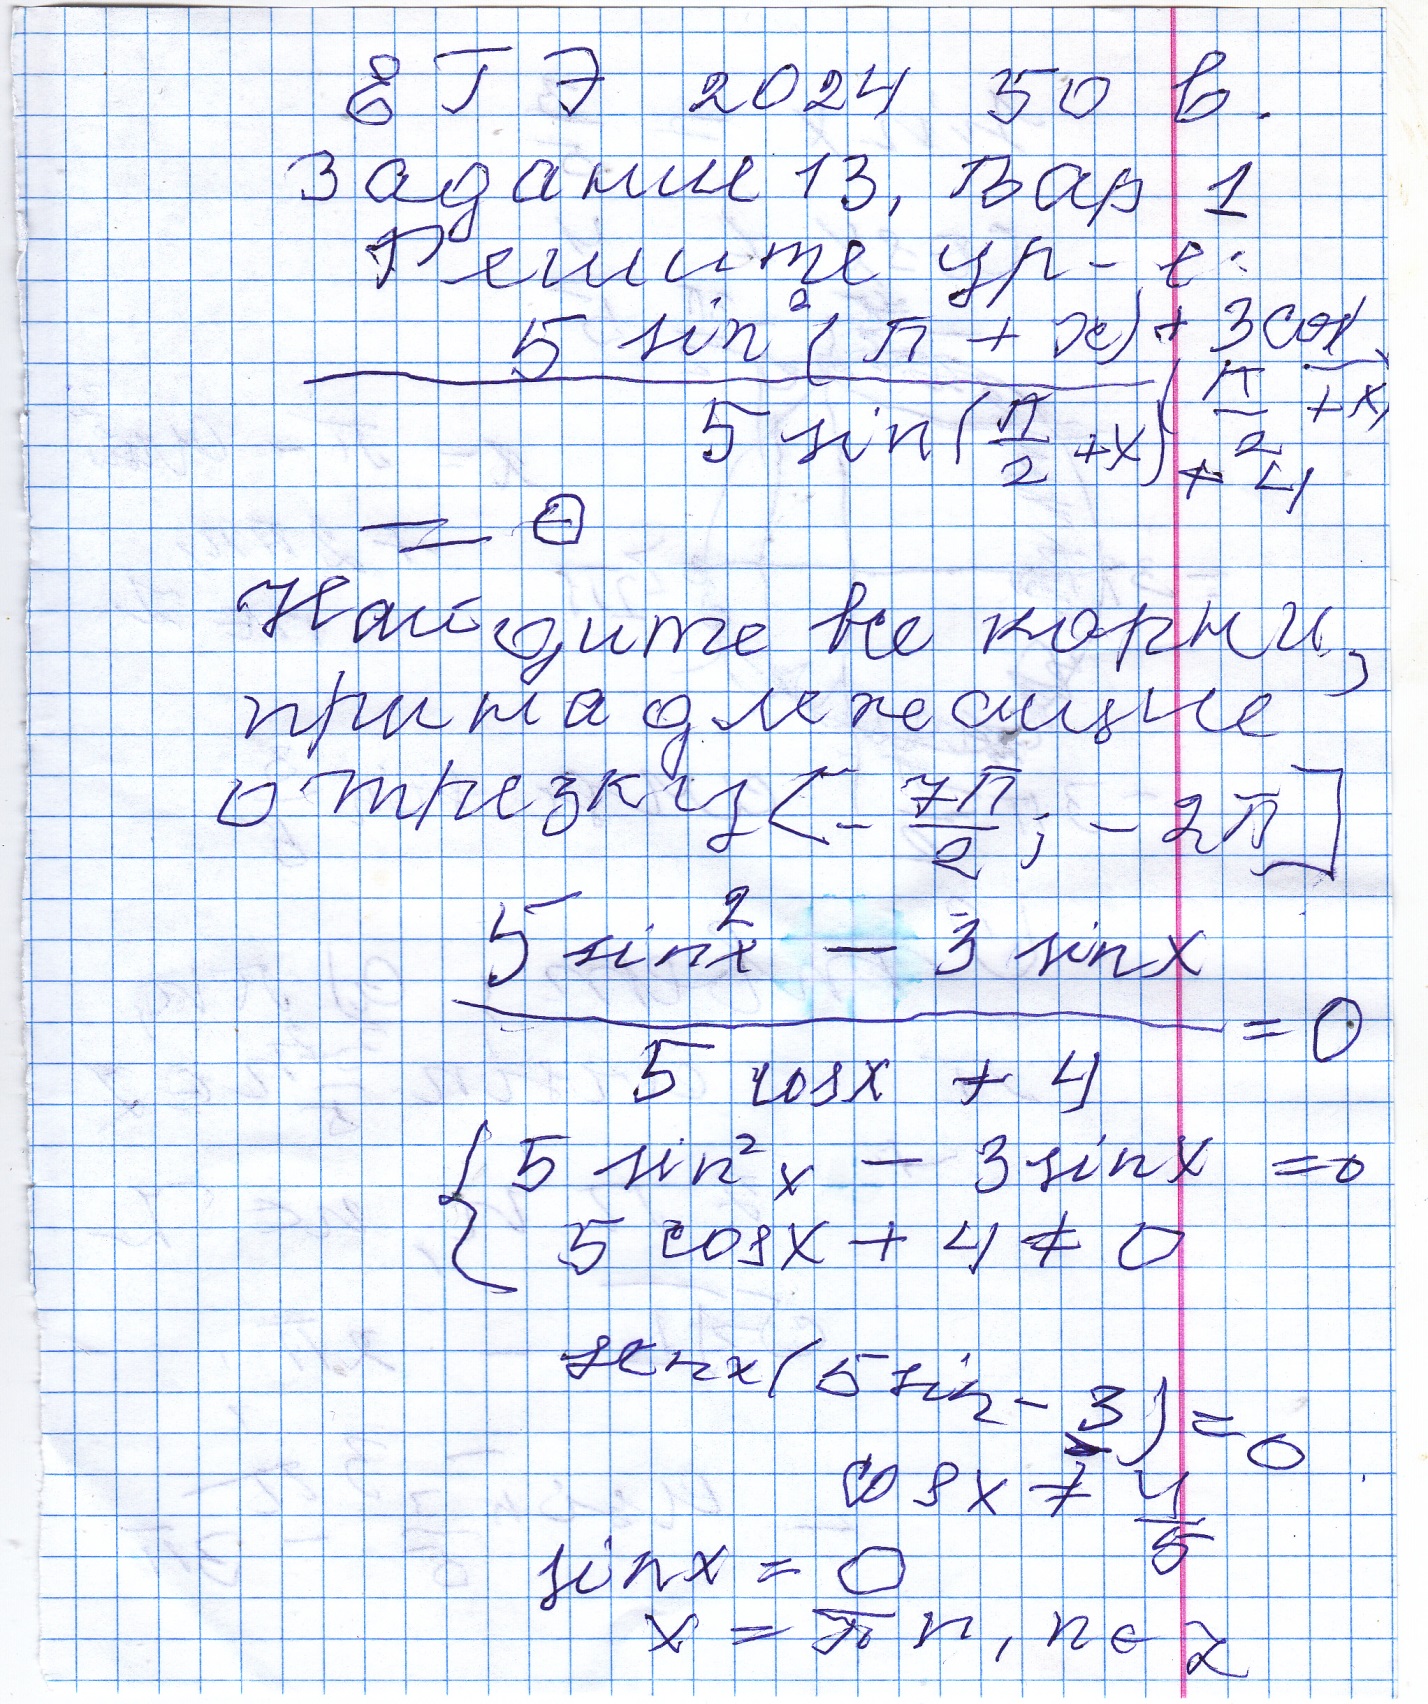 ЕГЭ 2024 50 в.
Задание 13, Вар 1
Решите ур-е:
5 sin²(π + x) + 3cos(π/2 + x)
5 sin(π/2 + x) + 4
= 0
Найдите все корни,
принадлежащие
отрезку [-7π/2; -2π]
5 sin²x - 3 sinx
= 0
5 cosx + 4
{ 5 sin²x - 3 sinx = 0
5 cosx + 4 ≠ 0
sinx(5 sin - 3) = 0
cosx ≠ 4/5
sinx = 0
x = πn, n ∈ Z